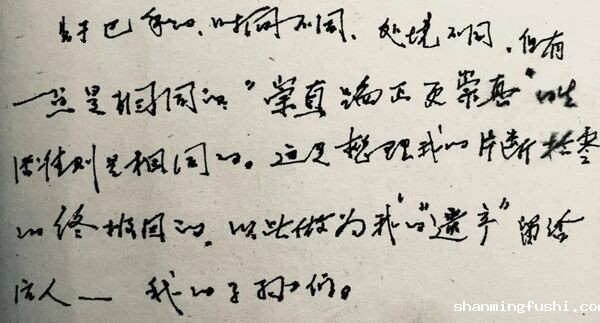 基于已往的、时间不同、处境不同，但有
一点是相同的"崇真端正更崇意"的生
活准则是相同的。这是整理我的片断拾零
的终极目的，以此做为我的"遗产"留给
后人——我的子孙们。
shanmingfushi.com